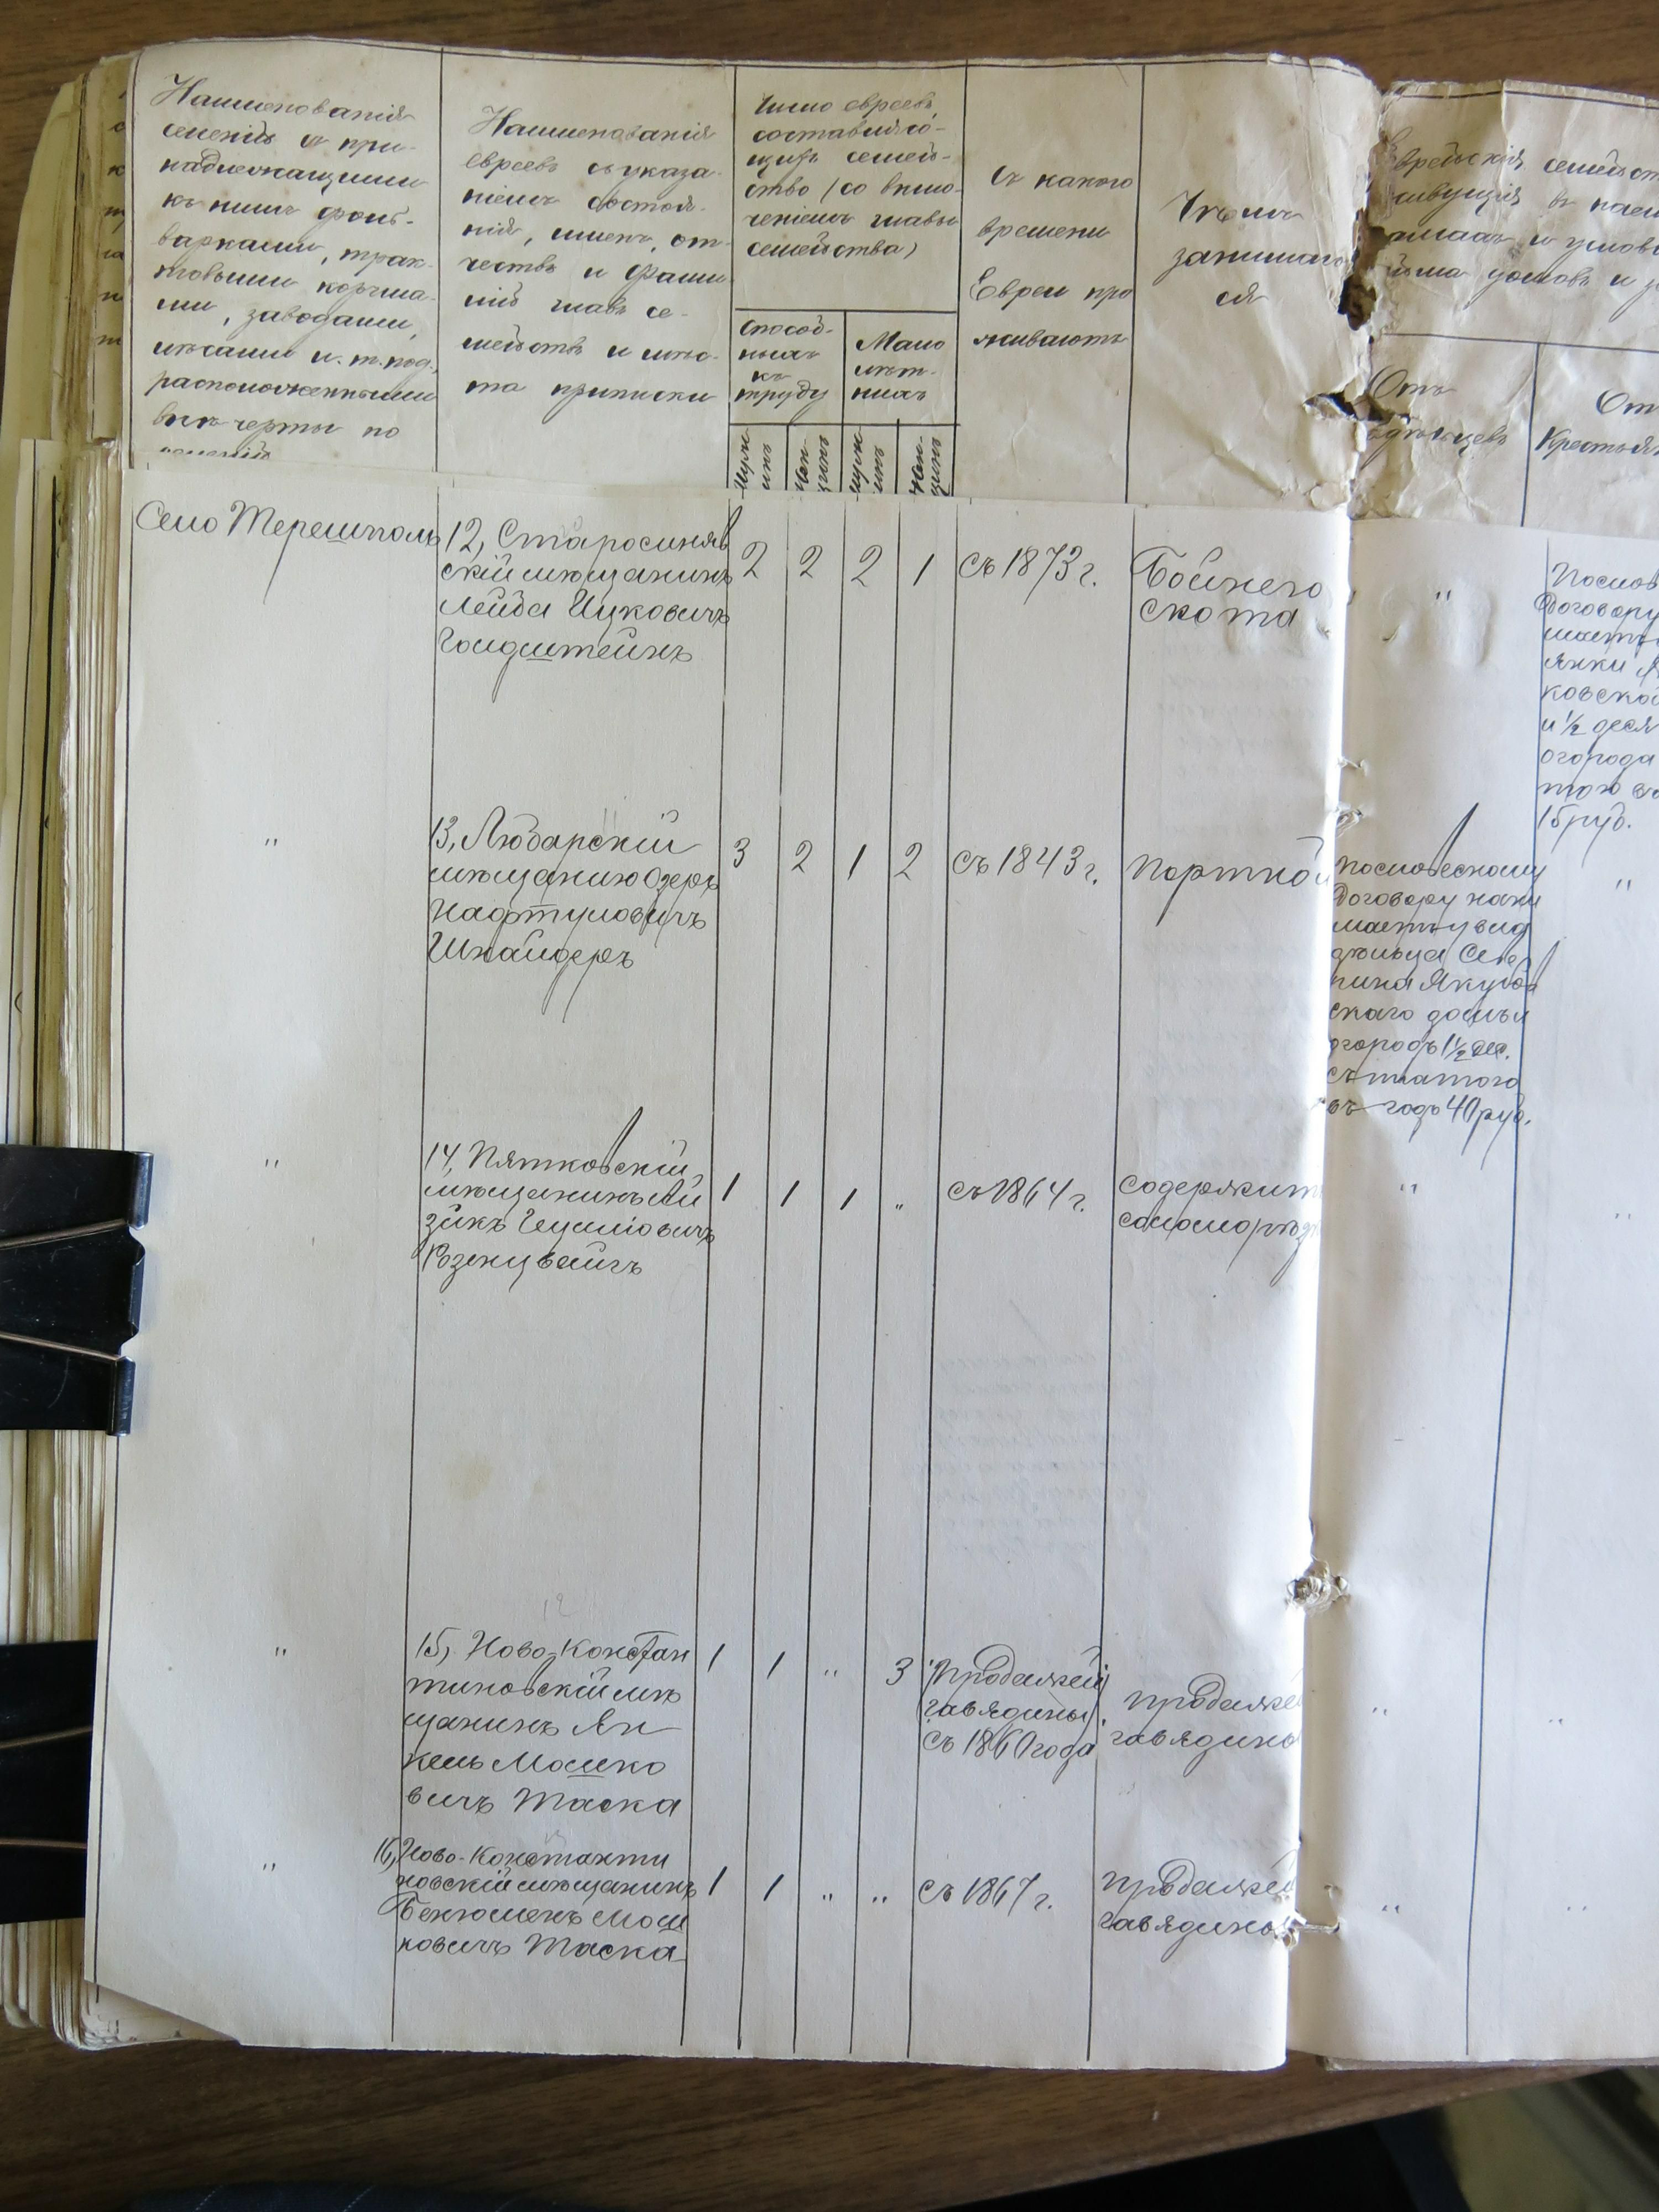 Наименованія
селеній съ при-
надлежащими
къ нимъ фоль-
варками, трак-
товыми корчма-
ми, заводами,
лѣсами и.т.под.,
расположенными
внѣ черты по
селеній
Наименованія
евреевъ съ указа-
ніемъ состоя-
нія, именъ, от-
чествъ и фами
лій главъ се-
мействъ и мѣс-
та приписки
Число евреевъ,
составляю-
щихъ семей-
ство (со вклю-
ченіемъ главы
семейства)
способ-
ныхъ
къ
труду
Мало
лѣт-
нихъ
муж
чинъ
жен
щинъ
муж
чинъ
жен
щинъ
съ какого
времени
Евреи про
живаютъ
Чѣмъ
занимаю
ся
Еврейскія
живущія въ
и
найма домовъ и
Отъ
Отъ
Село Терешполь
12, Старосиняв
скій мѣщанинъ
Лейба Ицковичъ
Голдштейнъ
2 2 2 1 съ 1873 г.
Бойнею
скота
"
13, Любарскій
мѣщанинъ Озеръ
Нафтуловичъ
Шнайдеръ
" 3 2 1 2 съ 1843 г. Портной
пословесному
договору нани
маетъ у вла
дѣльца Севе
рина Якубов
скаго домъ и
огородъ 1½ дес.
съ платою
въ годъ 40 руб.
"
огорода
15 руб.
14, Пятковскій
мѣщанинъ Ай
зикъ Шулимовичъ
Розенцвейгъ
" 1 1 1 " съ 1864 г.
содержит
соломорѣз
" "
15, Ново-Констан
тиновскій мѣ
щанинъ Ян
кель Мошко
вичъ Таска
" 1 1 " 3
(Продажей
говядины)
съ 1860 года
продаже
говядино
" "
16, Ново-Константи
новскій мѣщанинъ
Бенюменъ Мош
ковичъ Таска
" 1 1 " " съ 1867 г.
продажей
говядины
" "